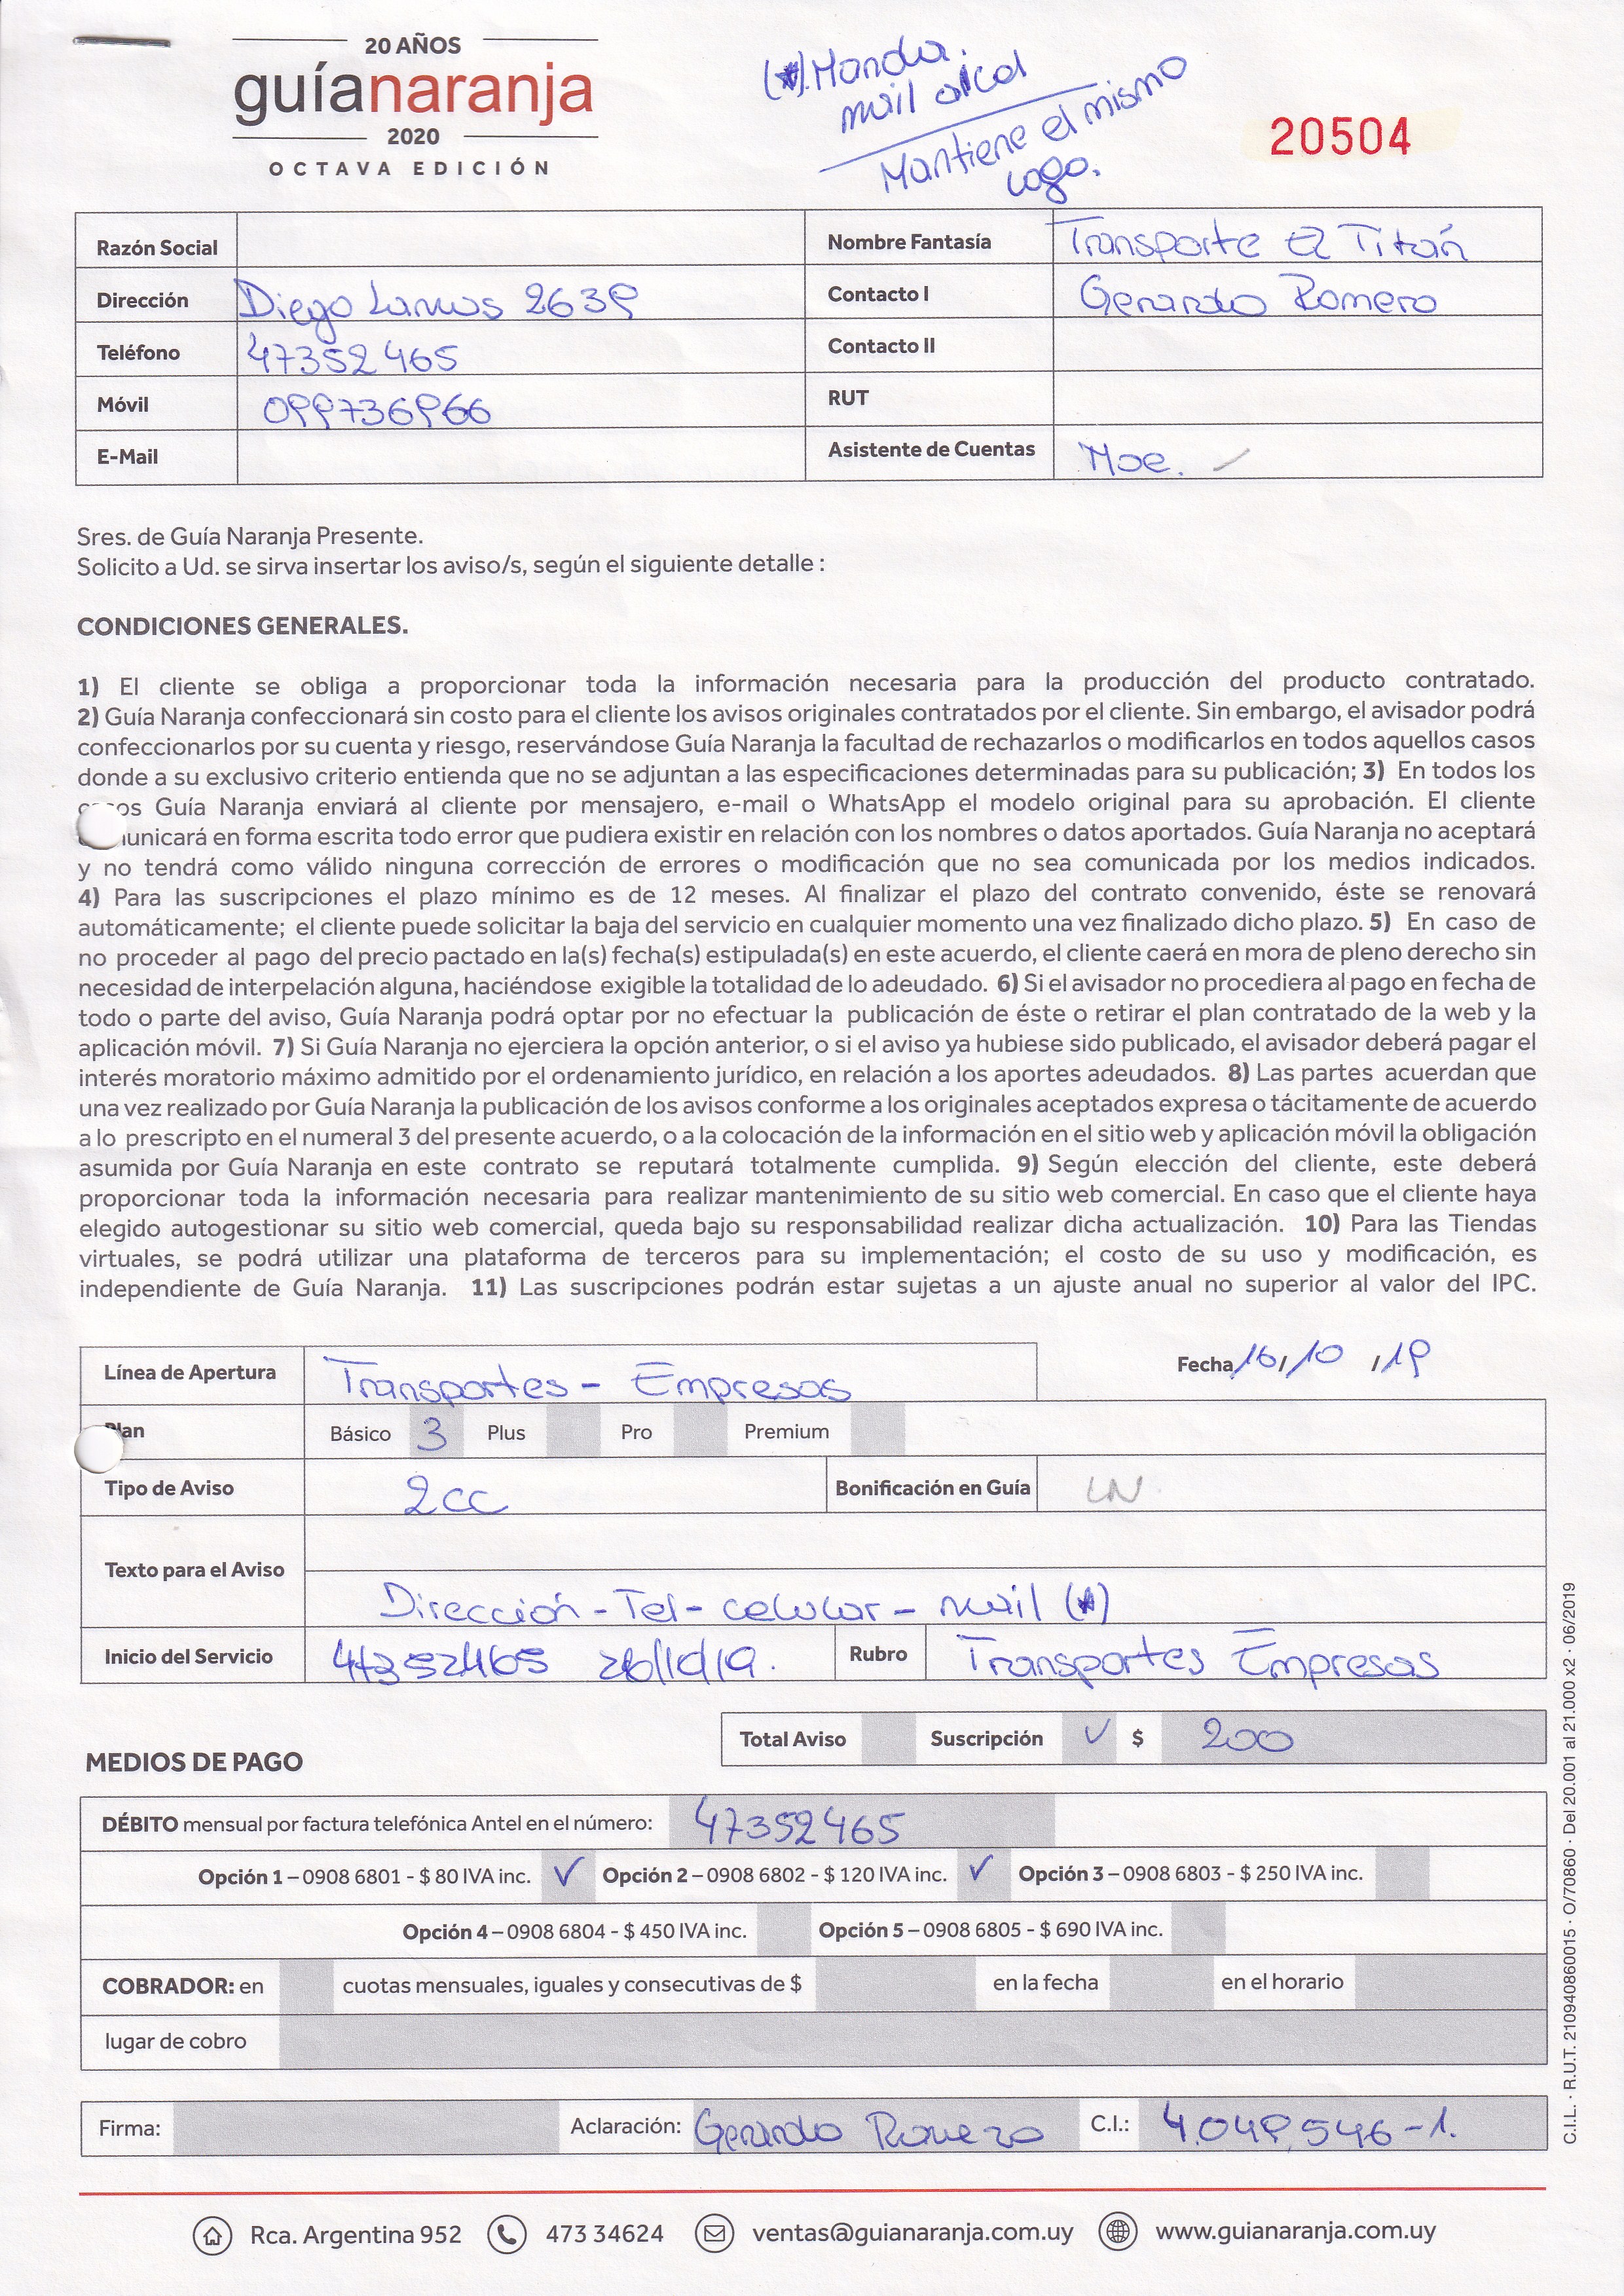 20 AÑOS
guíanaranja
2020
OCTAVA EDICIÓN
Mantiene el mismo
Logo.
20504
Razón Social
Nombre Fantasía Transporte El Titán
Dirección Diego Lamas 2639
Contacto I Gerardo Romero
Teléfono 47352465
Contacto II
Móvil 099736966
RUT
E-Mail
Asistente de Cuentas Moe.
Sres. de Guía Naranja Presente.
Solicito a Ud. se sirva insertar los aviso/s, según el siguiente detalle :
CONDICIONES GENERALES.
1) El cliente se obliga a proporcionar toda la información necesaria para la producción del producto contratado.
2) Guía Naranja confeccionará sin costo para el cliente los avisos originales contratados por el cliente. Sin embargo, el avisador podrá
confeccionarlos por su cuenta y riesgo, reservándose Guía Naranja la facultad de rechazarlos o modificarlos en todos aquellos casos
donde a su exclusivo criterio entienda que no se adjuntan a las especificaciones determinadas para su publicación; 3) En todos los
casos Guía Naranja enviará al cliente por mensajero, e-mail o WhatsApp el modelo original para su aprobación. El cliente
comunicará en forma escrita todo error que pudiera existir en relación con los nombres o datos aportados. Guía Naranja no aceptará
y no tendrá como válido ninguna corrección de errores o modificación que no sea comunicada por los medios indicados.
4) Para las suscripciones el plazo mínimo es de 12 meses. Al finalizar el plazo del contrato convenido, éste se renovará
automáticamente; el cliente puede solicitar la baja del servicio en cualquier momento una vez finalizado dicho plazo. 5) En caso de
no proceder al pago del precio pactado en la(s) fecha(s) estipulada(s) en este acuerdo, el cliente caerá en mora de pleno derecho sin
necesidad de interpelación alguna, haciéndose exigible la totalidad de lo adeudado. 6) Si el avisador no procediera al pago en fecha de
todo o parte del aviso, Guía Naranja podrá optar por no efectuar la publicación de éste o retirar el plan contratado de la web y la
aplicación móvil. 7) Si Guía Naranja no ejerciera la opción anterior, o si el aviso ya hubiese sido publicado, el avisador deberá pagar el
interés moratorio máximo admitido por el ordenamiento jurídico, en relación a los aportes adeudados. 8) Las partes acuerdan que
una vez realizado por Guía Naranja la publicación de los avisos conforme a los originales aceptados expresa o tácitamente de acuerdo
a lo prescripto en el numeral 3 del presente acuerdo, o a la colocación de la información en el sitio web y aplicación móvil la obligación
asumida por Guía Naranja en este contrato se reputará totalmente cumplida. 9) Según elección del cliente, este deberá
proporcionar toda la información necesaria para realizar mantenimiento de su sitio web comercial. En caso que el cliente haya
elegido autogestionar su sitio web comercial, queda bajo su responsabilidad realizar dicha actualización. 10) Para las Tiendas
virtuales, se podrá utilizar una plataforma de terceros para su implementación; el costo de su uso y modificación, es
independiente de Guía Naranja. 11) Las suscripciones podrán estar sujetas a un ajuste anual no superior al valor del IPC.
Línea de Apertura Transportes - Empresas
Fecha 16/10/19
Plan Básico 3 Plus Pro Premium
Tipo de Aviso 2cc Bonificación en Guía LN
Texto para el Aviso
Dirección - Tel - celular - mail (*)
Inicio del Servicio 47352465 26/10/19. Rubro Transportes Empresas
Total Aviso Suscripción ✓ $ 200
MEDIOS DE PAGO
DÉBITO mensual por factura telefónica Antel en el número: 47352465
Opción 1 – 0908 6801 - $ 80 IVA inc. ✓ Opción 2 – 0908 6802 - $ 120 IVA inc. ✓ Opción 3 – 0908 6803 - $ 250 IVA inc.
Opción 4 – 0908 6804 - $ 450 IVA inc. Opción 5 – 0908 6805 - $ 690 IVA inc.
COBRADOR: en cuotas mensuales, iguales y consecutivas de $ en la fecha en el horario
lugar de cobro
Firma: Aclaración: Gerardo Romero C.I.: 4.049.546-1.
Rca. Argentina 952 473 34624 ventas@guianaranja.com.uy www.guianaranja.com.uy
C.I.L. · R.U.T. 210940860015 · O/70860 · Del 20.001 al 21.000 x2 · 06/2019